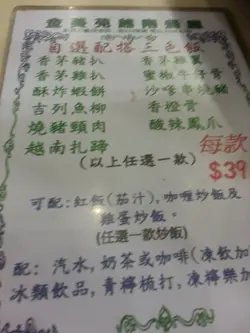 越南餐廳
自選配搭三色飯
香茅豬扒 香茅雞翼
香茅雞扒 蜜椒牛仔骨
酥炸蝦餅 沙嗲串燒豬
吉列魚柳 香橙骨
燒豬頸肉 酸辣鳳爪
越南扎蹄 每款
(以上任選一款) $39
可配:紅飯(茄汁),咖喱炒飯及
雞蛋炒飯。
(任選一款炒飯)
配: 汽水,奶茶或咖啡(凍飲加
冰類飲品,青檸梳打,凍檸樂加